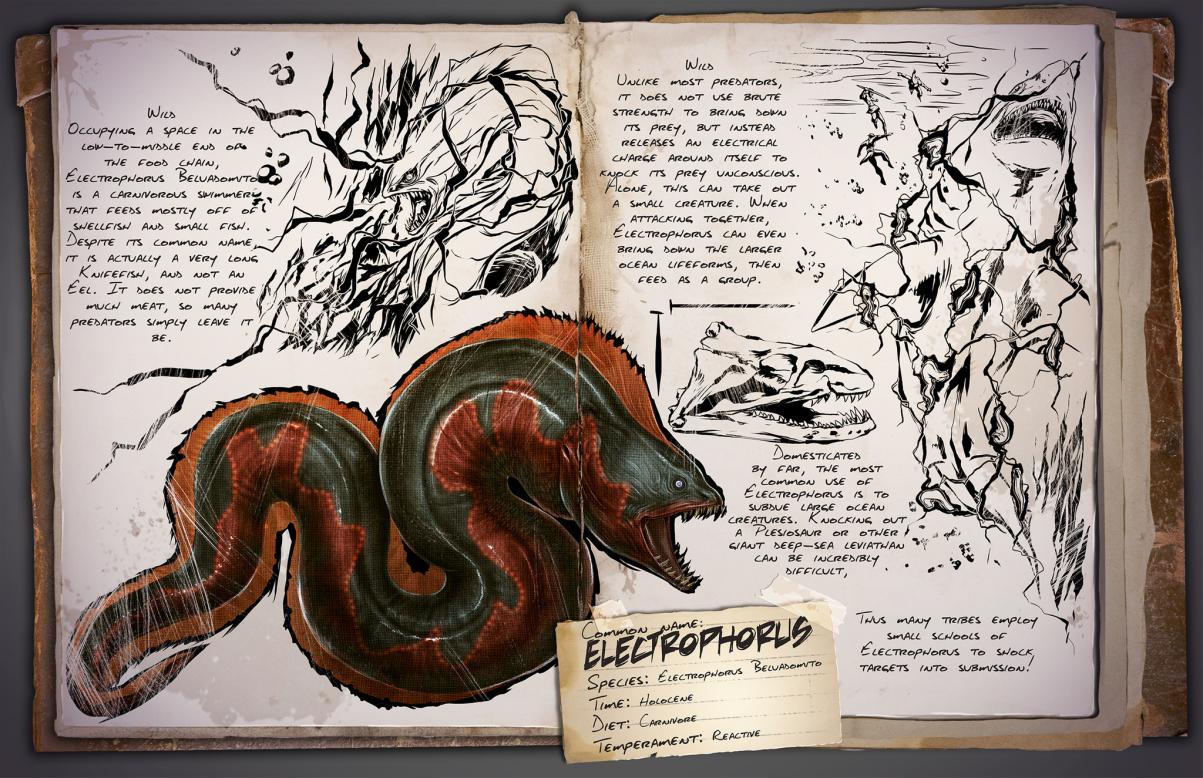 Wild
Occupying a space in the
low-to-middle end of
the food chain,
Electrophorus Beluadomito
is a carnivorous swimmer
that feeds mostly off of
shellfish and small fish.
Despite its common name,
it is actually a very long
Knifefish, and not an
Eel. It does not provide
much meat, so many
predators simply leave it
be.
Wild
Unlike most predators,
it does not use brute
strength to bring down
its prey, but instead
releases an electrical
charge around itself to
knock its prey unconscious.
Alone, this can take out
a small creature. When
attacking together,
Electrophorus can even
bring down the larger
ocean lifeforms, then
feed as a group.
Domesticated
by far, the most
common use of
Electrophorus is to
subdue large ocean
creatures. Knocking out
a Plesiosaur or other
giant deep-sea leviathan
can be incredibly
difficult,
Thus many tribes employ
small schools of
Electrophorus to shock
targets into submission!
Common name:
ELECTROPHORUS
Species: Electrophorus Beluadomito
Time: Holocene
Diet: Carnivore
Temperament: Reactive